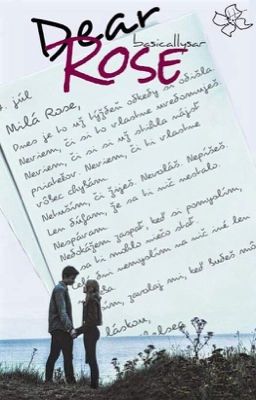 Dear
basicallysar
ROSE
júl
Milá Rose,
Dnes je to už týždeň odkedy si odišla.
Neviem, či si to vlastne uvedomuješ.
Neviem, či si si už stihla nájsť
priateľov. Neviem, či ti vlastne
vôbec chýbam.
Netuším, či žiješ. Nevoláš. Nepíšeš.
Len dúfam, že sa ti nič nestalo.
Nespávam.
Nedokážem zaspať, keď si pomyslím,
sa ti mohlo niečo stať.
dni nemyslím na nič iné len
zavolaj mi, keď budeš
láskou,